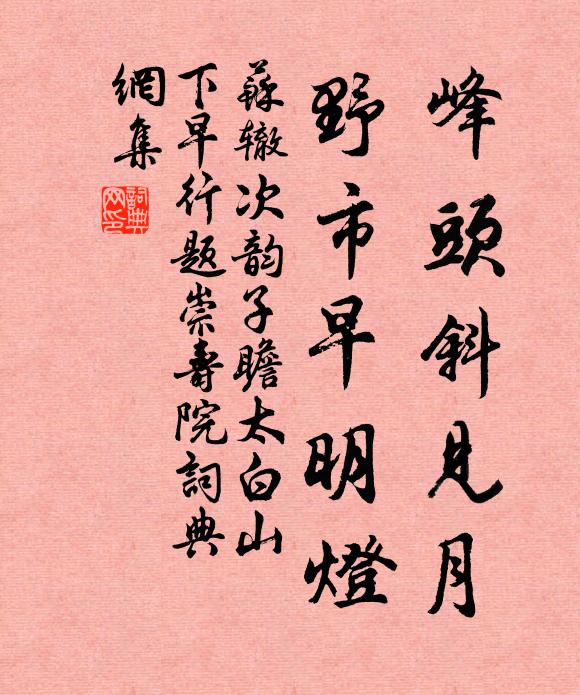 峰頭斜見月
野市早明燈
蘇辙次韵子瞻太白山
下早行题崇壽院詞典
網集
詞典
网印